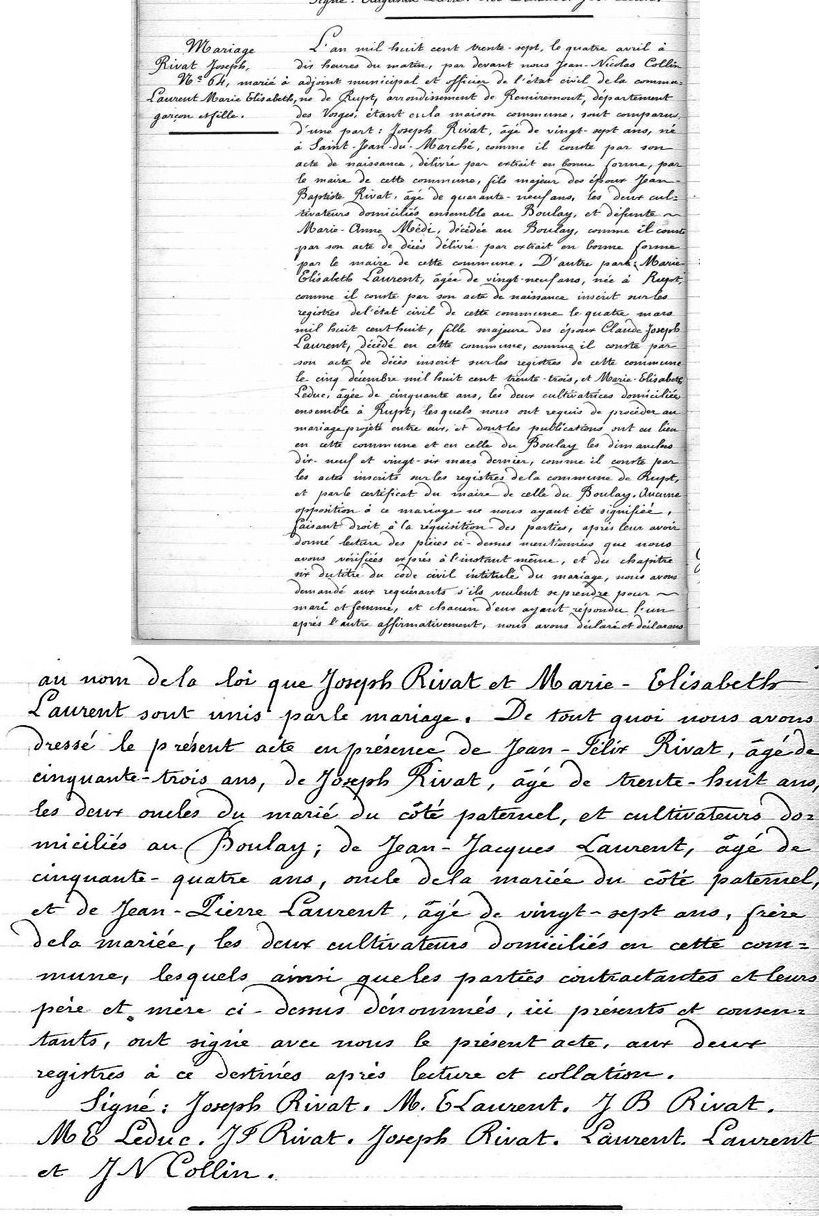 Mariage
Rivat Joseph,
N.º 64, marié à
Laurent Marie Elisabeth,
garçon et fille.
L'an mil huit cent trente-sept, le quatre avril à
dix heures du matin, par devant nous Jean-Nicolas Collin
adjoint municipal et officier de l'état civil de la commu-
ne de Rupt, arrondissement de Remiremont, département
des Vosges, étant en la maison commune, sont comparus,
d'une part: Joseph Rivat, âgé de vingt-sept ans, né
à Saint-Jean-du-Marché, comme il conste par son
acte de naissance, délivré par extrait en bonne forme, par
le maire de cette commune, fils majeur des époux Jean-
Baptiste Rivat, âgé de quarante-neuf ans, les deux cul-
tivateurs domiciliés ensemble au Boulay, et défunte ~
Marie-Anne Médi, décédée au Boulay, comme il conste
par son acte de décès délivré par extrait en bonne forme
par le maire de cette commune. D'autre part: Marie-
Elisabeth Laurent, âgée de vingt-neuf ans, née à Rupt,
comme il conste par son acte de naissance inscrit sur les
registres de l'état civil de cette commune le quatre mars
mil huit cent huit, fille majeure des époux Claude Joseph
Laurent, décédé en cette commune, comme il conste par
son acte de décès inscrit sur les registres de cette commune
le cinq décembre mil huit cent trente-trois, et Marie-Elisabeth
Leduc, âgée de cinquante ans, les deux cultivatrices domiciliées
ensemble à Rupt, lesquels nous ont requis de procéder au
mariage projeté entre eux, et dont les publications ont eu lieu
en cette commune et en celle du Boulay les dimanches
dix-neuf et vingt-six mars dernier, comme il conste par
les actes inscrits sur les registres de la commune de Rupt,
et par le certificat du maire de celle du Boulay. Aucune
opposition à ce mariage ne nous ayant été signifiée,
faisant droit à la réquisition des parties, après leur avoir
donné lecture des pièces ci-dessus mentionnées que nous
avons vérifiées exprès à l'instant même, et du chapitre
six du titre du code civil intitulé du mariage, nous avons
demandé aux requérants s'ils veulent se prendre pour ~
mari et femme, et chacun d'eux ayant répondu l'un
après l'autre affirmativement, nous avons déclaré et déclarons
au nom de la loi que Joseph Rivat et Marie-Elisabeth
Laurent sont unis par le mariage. De tout quoi nous avons
dressé le présent acte en présence de Jean-Félix Rivat, âgé de
cinquante-trois ans, de Joseph Rivat, âgé de trente-huit ans,
les deux oncles du marié du côté paternel, et cultivateurs do=
miciliés au Boulay; de Jean-Jacques Laurent, âgé de
cinquante-quatre ans, oncle de la mariée du côté paternel,
et de Jean-Pierre Laurent, âgé de vingt-sept ans, frère
de la mariée, les deux cultivateurs domiciliés en cette com=
mune, lesquels ainsi que les parties contractantes et leurs
père et mère ci-dessus dénommés, ici présents et consen=
tants, ont signé avec nous le présent acte, aux deux
registres à ce destinés après lecture et collation.
Signé: Joseph Rivat. M. E Laurent. J B Rivat.
M E Leduc. J F Rivat. Joseph Rivat. Laurent. Laurent
et J N Collin.